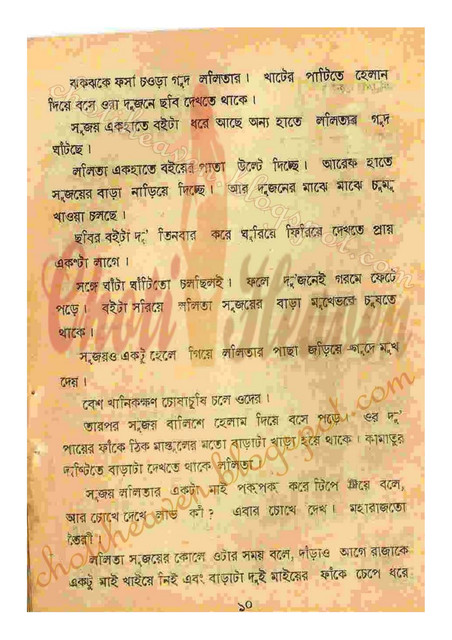 ঝকঝকে ফর্সা চওড়া গুদ ললিতার। খাটের পাটিতে হেলান
দিয়ে বসে ওরা দুজনে ছবি দেখতে থাকে।
সুজয় একহাতে বইটা ধরে আছে অন্য হাতে ললিতার গুদ
ঘাঁটছে।
ললিতা একহাতে বইয়ের পাতা উল্টে দিচ্ছে। আরেক হাতে
সুজয়ের বাড়া নাড়িয়ে দিচ্ছে। আর দুজনের মাঝে মাঝে চুমু
খাওয়া চলছে।
ছবির বইটা দু' তিনবার করে ঘুরিয়ে ফিরিয়ে দেখতে প্রায়
একঘণ্টা লাগে।
সঙ্গে ঘাঁটা ঘাঁটিতো চলছিলই। ফলে দু'জনেই গরমে ফেটে
পড়ে। বইটা সরিয়ে ললিতা সুজয়ের বাড়া মুখেভরে চুষতে
থাকে।
সুজয়ও একটু হেলে গিয়ে ললিতার পাছা জড়িয়ে গুদে মুখ
দেয়।
বেশ খানিকক্ষণ চোষাচুষি চলে ওদের।
তারপর সুজয় বালিশে হেলান দিয়ে বসে পড়ে। ওর দু'
পায়ের ফাঁকে ঠিক মাস্তুলের মতো বাড়াটা খাড়া হয়ে থাকে। কামাতুর
দৃষ্টিতে বাড়াটা দেখতে থাকে ললিতা
সুজয় ললিতার একটা মাই পকপক করে টিপে দিয়ে বলে,
আর চোখে দেখে লাভ কী? এবার চোখে দেখ। মহারাজতো
তৈরী।
ললিতা সুজয়ের কোলে ওটার সময় বলে, দাঁড়াও আগে রাজাকে
একটু মাই খাইয়ে নিই এবং বাড়াটা দুই মাইয়ের ফাঁকে চেপে ধরে
১০
Choti Heaven
chotiheaven.blogspot.com